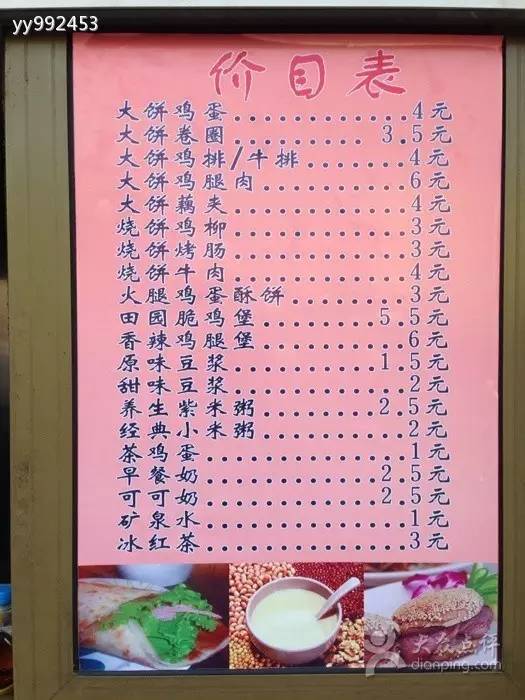 yy992453
价目表
大饼鸡蛋....................4元
大饼卷圈............... 3.5元
大饼鸡排/牛排.......4元
大饼鸡腿肉..............6元
大饼藕夹....................4元
烧饼鸡柳....................3元
烧饼烤肠....................3元
烧饼牛肉....................4元
火腿鸡蛋酥饼.........3元
田园脆鸡堡...........5.5元
香辣鸡腿堡..............6元
原味豆浆...............1.5元
甜味豆浆....................2元
养生紫米粥...........2.5元
经典小米粥..............2元
茶鸡蛋........................1元
早餐奶..................2.5元
可可奶..................2.5元
矿泉水........................1元
冰红茶........................3元
大众点评
dianping.com